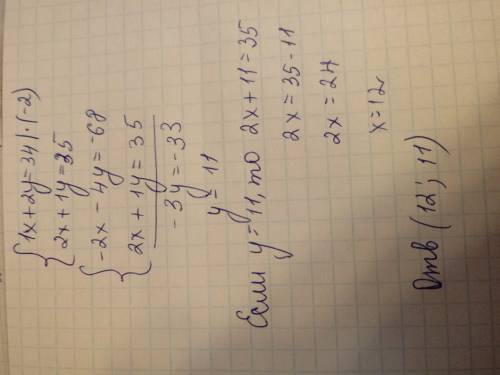 1x+2y=34|·(-2)
2x+1y=35
-2x-4y=-68
2x+1y=35
-3y=-33
y=11
Если y=11, то 2x+11=35
2x=35-11
2x=24
x=12
Отв (12; 11)